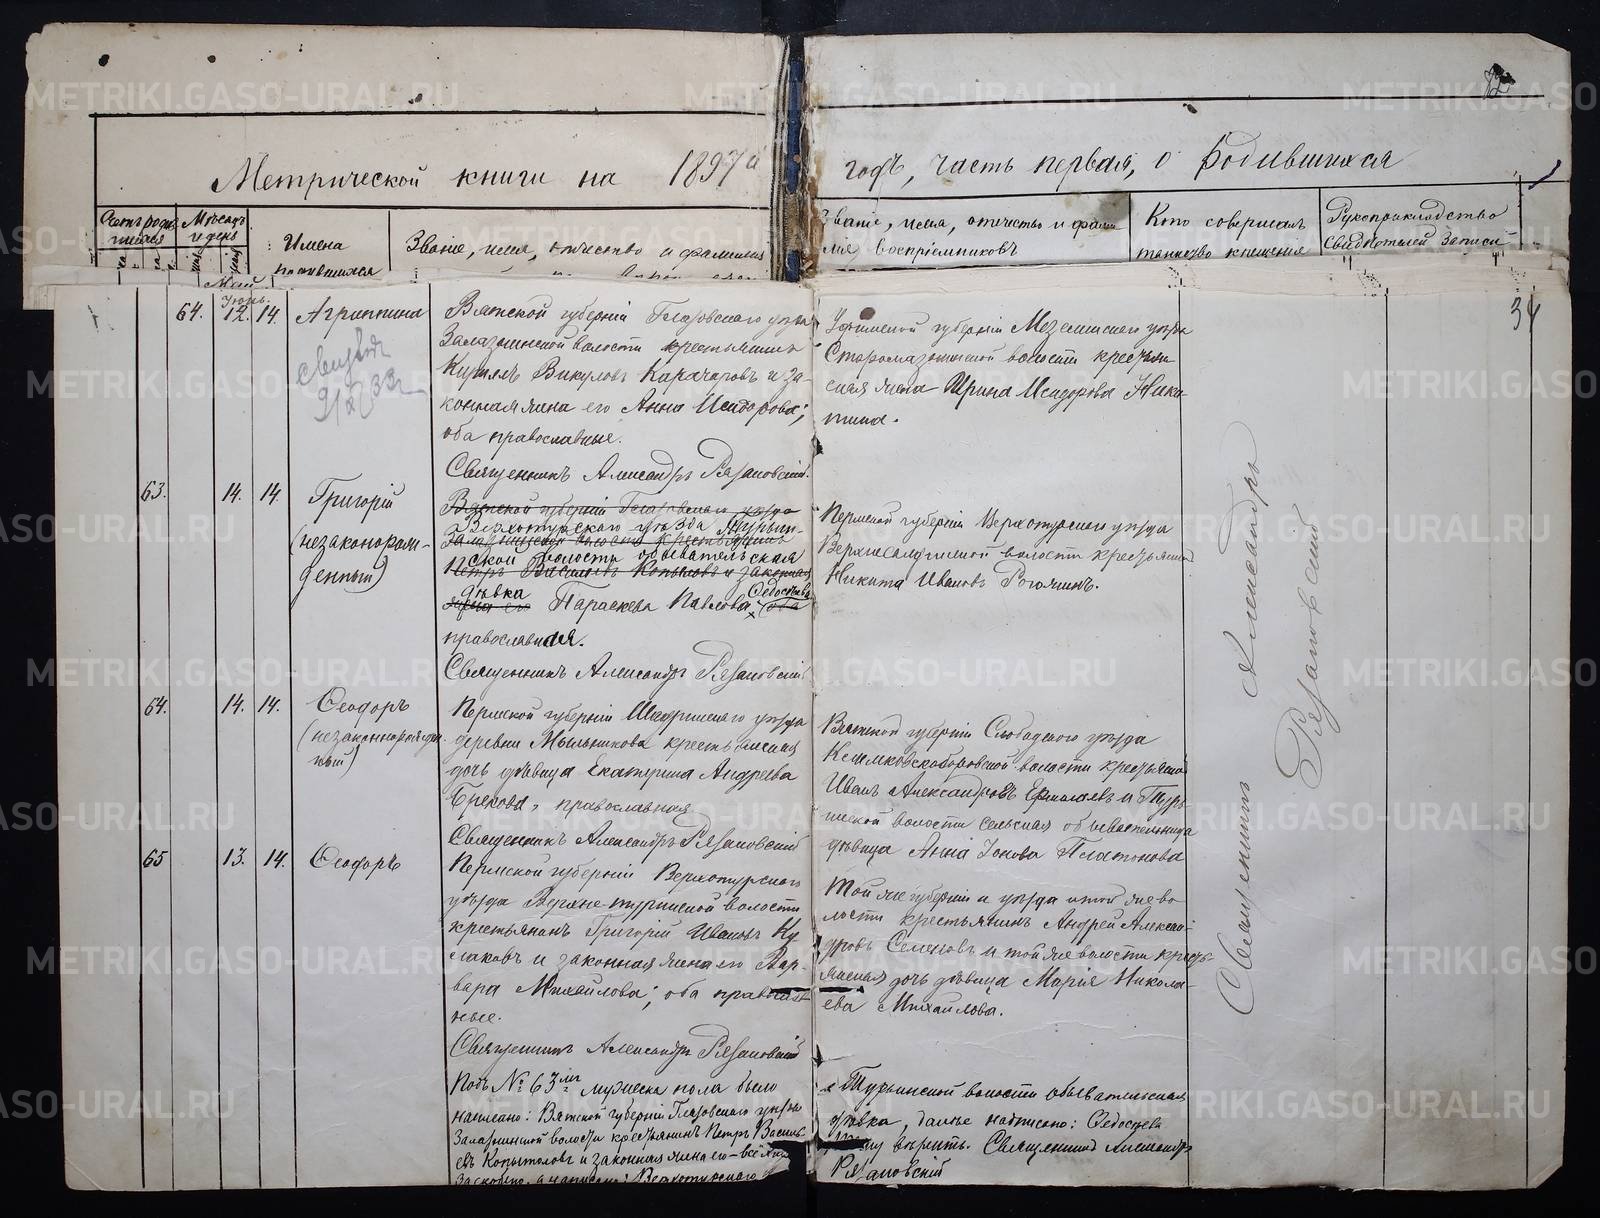 12
Метрической книги на 1897й
годъ, часть первая, о родившихся
Счетъ родив-
шихся
Мѣсяцъ
и день
Имена
родившихся
Званіе, имя, отчество и фамилія
Званіе, имя, отчество и фами
лія воспріемниковъ
Кто совершалъ
таинство крещенія
Рукоприкладство
свидѣтелей записи
Май
34
Іюнь.
64. 12. 14. Агриппина
свид
9/X 33
Вятской губерніи Глазовскаго уѣзда
Залазнинской волости крестьянинъ
Кириллъ Викуловъ Карачаровъ и за-
конная жена его Анна Исидорова;
оба православные.
Священникъ Александръ Рязановскій.
Уфимской губерніи Мензелинскаго уѣзда
волости крестьян
ская жена Ирина Исидорова Ники
тина.
63. 14. 14. Григорій
(незаконорож-
денный)
Вятской губерніи Глазовскаго уѣзда
Верхотурскаго уѣзда Турьин-
Залазнинской волости крестьянинъ
ской волости обывательская
Петръ Васильевъ Копытовъ и законная
дѣвка Ѳедосѣева
жена его Параскева Павлова, оба
православная.
Священникъ Александръ Рязановскій
Пермской губерніи Верхотурскаго уѣзда
Верхнесалдинской волости крестьянинъ
Никита Ивановъ
64. 14. 14. Ѳеодоръ
(незаконнорожден
ный)
Пермской губерніи Шадринскаго уѣзда
деревни Мыльникова крестьянская
дочь дѣвица Екатерина Андреева
Грехова, православная
Священникъ Александръ Рязановскій
Вятской губерніи Слободскаго уѣзда
волости крестьянинъ
Иванъ Александровъ Ермолаевъ и Турь-
инской волости сельская обывательница
дѣвица Анна Іонова Платонова
65 13. 14. Ѳеодоръ
Пермской губерніи Верхотурскаго
уѣзда Верхне-туринской волости
крестьянинъ Григорій Ивановъ Ку
лаковъ и законная жена его Вар-
вара Михайлова; оба православ
ные.
Священникъ Александръ Рязановскій
Той же губерніи и уѣзда и той же во
лости крестьянинъ Андрей Алексан-
дровъ Семеновъ и той же волости кресть-
янская дочь дѣвица Марія Никола-
ева Михайлова.
Подъ № 63мъ мужеска пола было
написано: Вятской губерніи Глазовскаго уѣзда
Залазнинской волости крестьянинъ Петръ Василь-
евъ Копытовъ и законная жена его – все это
заскоблено, а написано: Верхотурскаго
и Турьинской волости обывательская
дѣвка, далее надписано: Ѳедосѣева
вѣрить. Священникъ Александръ
Рязановскій
Священникъ Александръ
Рязановскій
METRIKI.GASO-URAL.RU